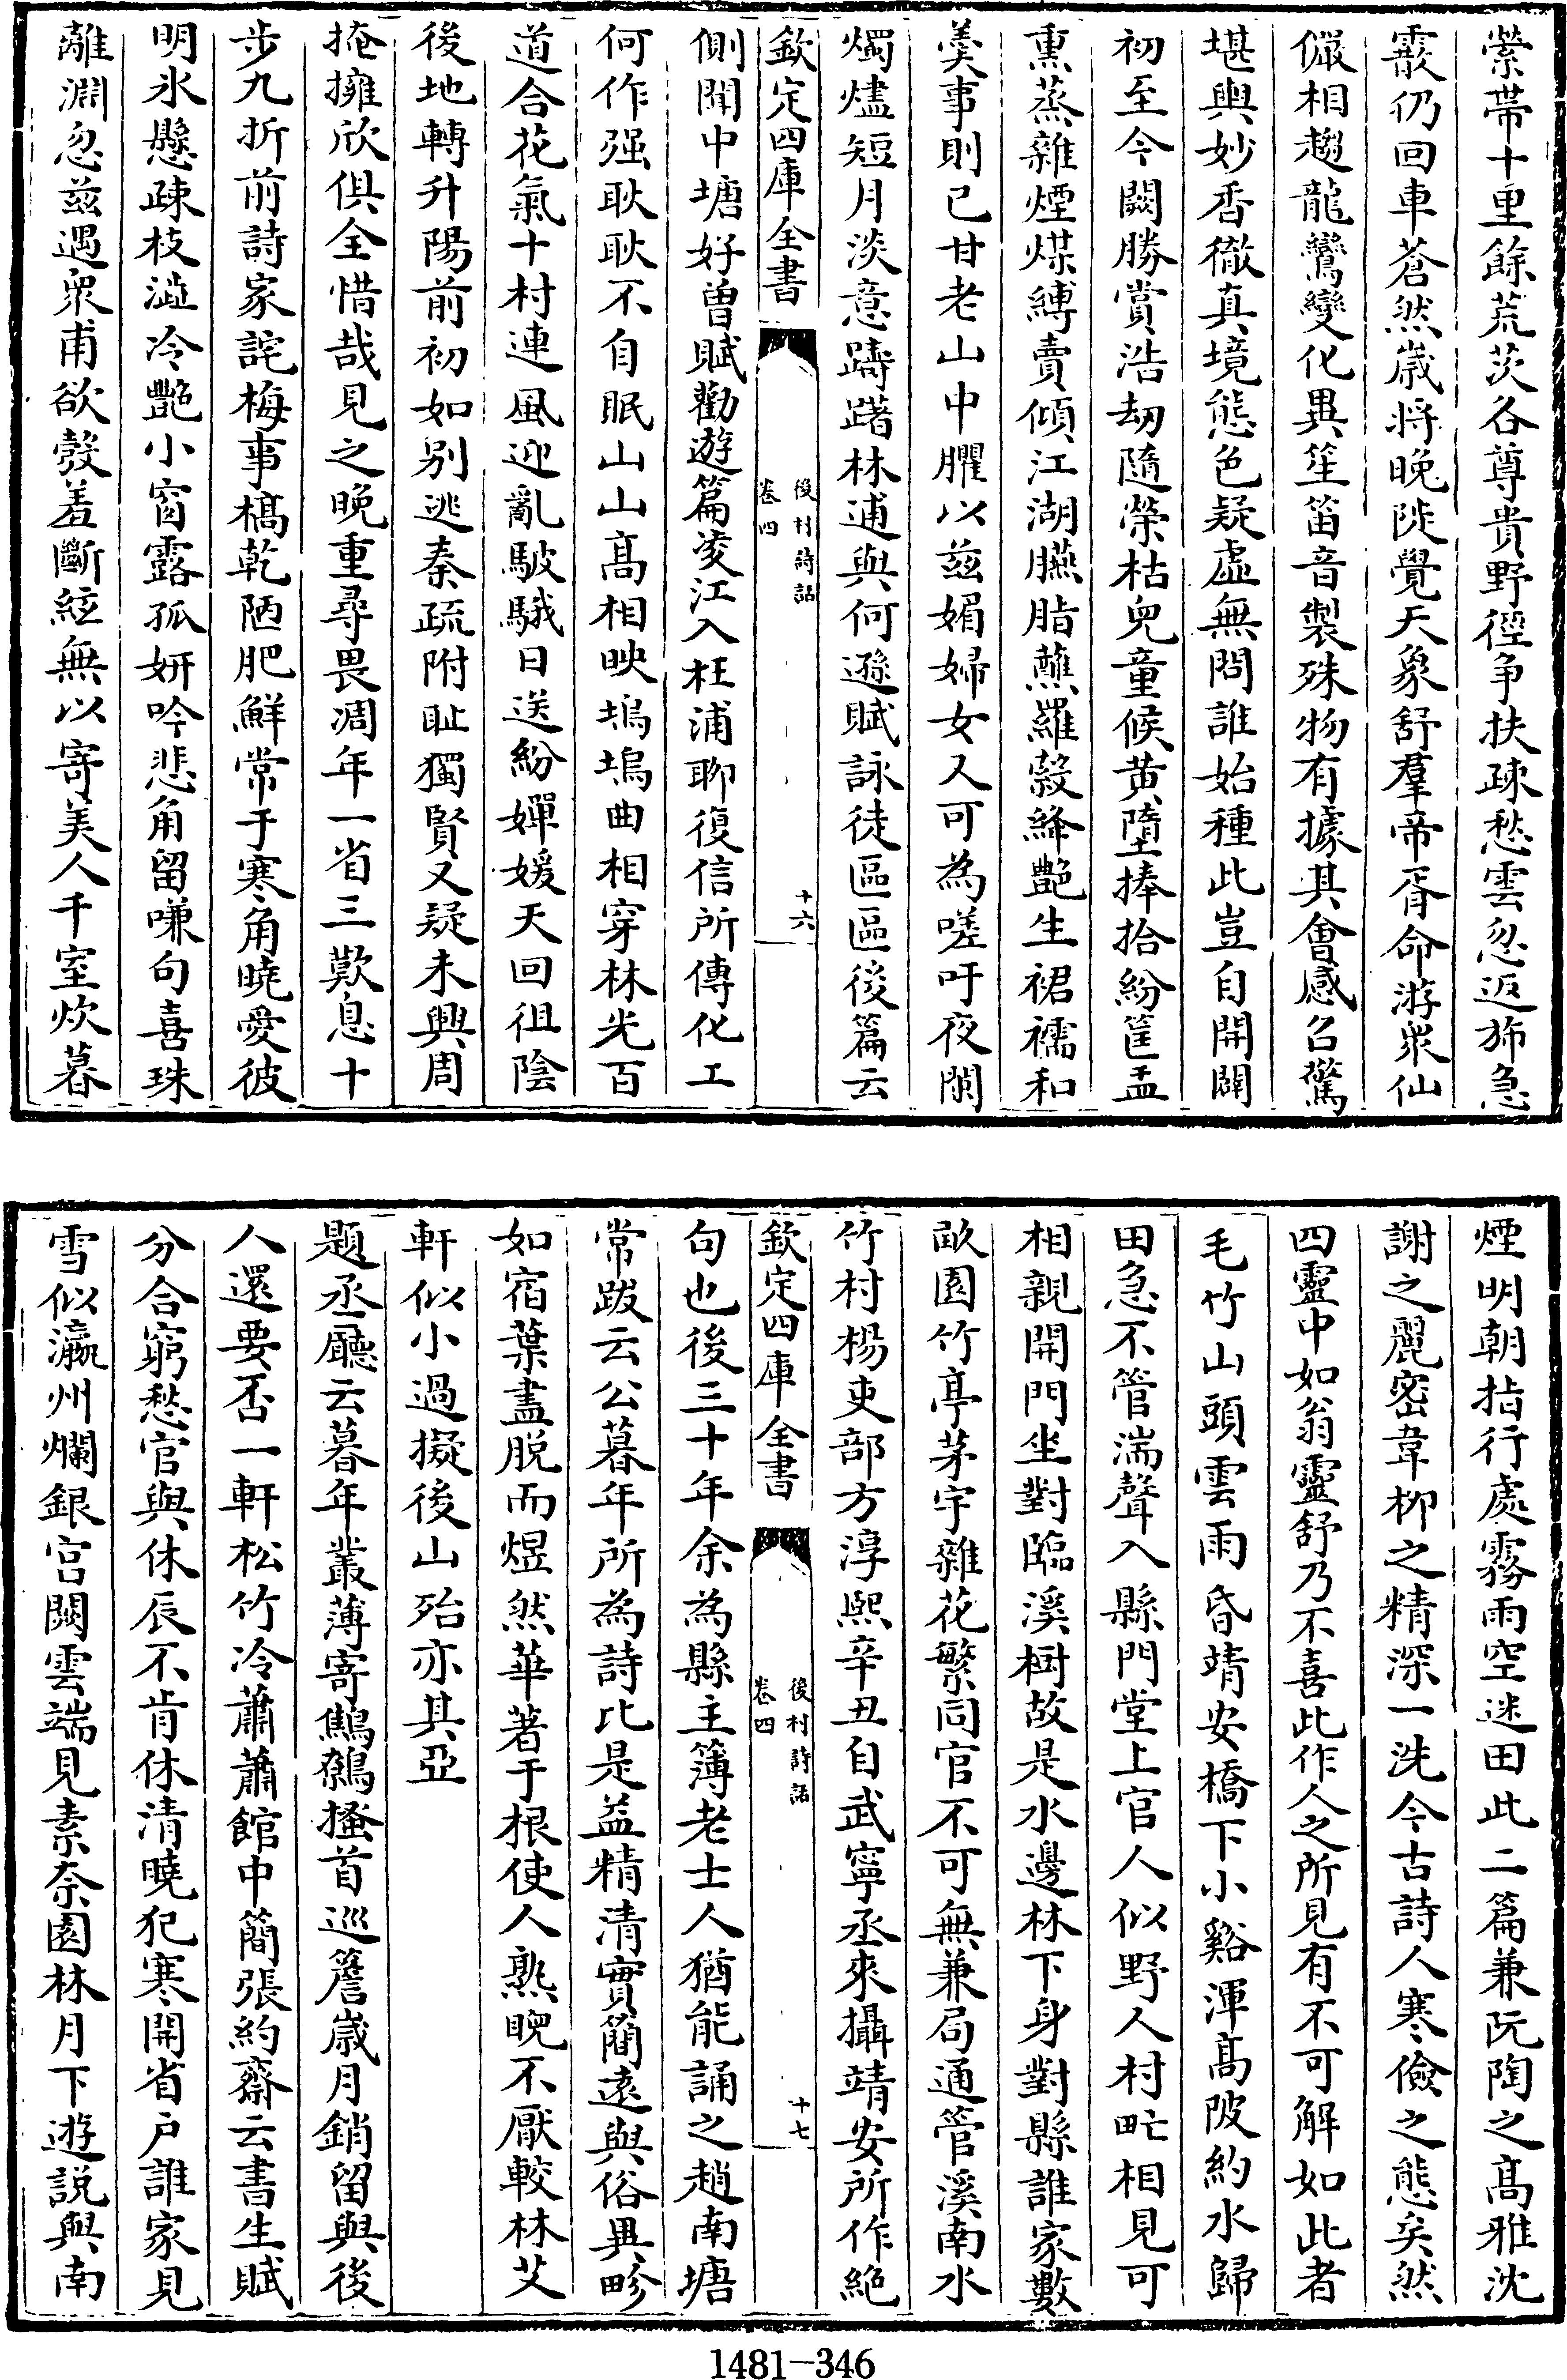 縈帶十里餘荒茨各尊貴野徑争扶疎愁雲忽返斾急
霰仍回車蒼然歳將晚陡覺天象舒羣帝胥命游衆仙
儼相趨龍鸞變化異笙笛音製殊物有據其會感召驚
堪輿妙香徹真境態色疑虛無問誰始種此豈自開闢
初至今闕勝賞浩劫隨榮枯兒童候黄墮捧拾紛筐盂
熏蒸雜煙煤縛賣傾江湖臙脂蘸羅縠絳艷生裙襦和
羹事則已甘老山中臞以兹媚婦女又可為嗟吁夜闌
燭燼短月淡意躊躇林逋與何遜賦詠徒區區後篇云
欽定四庫全書
後村詩話
卷四
十六
側聞中塘好曾賦勸遊篇凌江入枉浦聊復信所傳化工
何作强耿耿不自眠山山高相映塢塢曲相穿林光百
道合花氣十村連風迎亂駊騀日送紛嬋媛天回徂陰
後地轉升陽前初如别逃秦疏附耻獨賢又疑未興周
掩擁欣俱全惜哉見之晚重尋畏凋年一省三歎息十
步九折前詩家詫梅事槁乾陋肥鮮常于寒角曉愛彼
明氷懸疎枝澁冷艷小窗露孤妍吟悲角留嗛句喜珠
離淵忽兹遇衆甫欲發羞斷絃無以寄美人千室炊暮
煙明朝拈行處霧雨空迷田此二篇兼阮陶之高雅沈
謝之麗密韋柳之精深一洗今古詩人寒儉之態矣然
四靈中如翁靈舒乃不喜此作人之所見有不可解如此者
毛竹山頭雲雨昏靖安橋下小谿渾高陂約水歸
田急不管湍聲入縣門堂上官人似野人村甿相見可
相親開門坐對臨溪樹故是水邊林下身對縣誰家數
畝園竹亭茅宇雜花繁同官不可無兼局通管溪南水
竹村楊吏部方淳熙辛丑自武寧丞來攝靖安所作絶
欽定四庫全書
後村詩話
卷四
十七
句也後三十年余為縣主簿老士人猶能誦之趙南塘
常跋云公暮年所為詩比是益精清實簡遠與俗異畛
如宿葉盡脱而煜然華著于根使人熟睨不厭較林艾
軒似小過擬後山殆亦其亞
題丞廳云暮年叢薄寄鷦鷯搔首巡簷歳月銷留與後
人還要否一軒松竹冷蕭蕭館中簡張約齋云書生賦
分合窮愁官與休辰不肯休清曉犯寒開省戶誰家見
雪似瀛州爛銀宫闕雲端見素奈園林月下遊説與南
1481-346